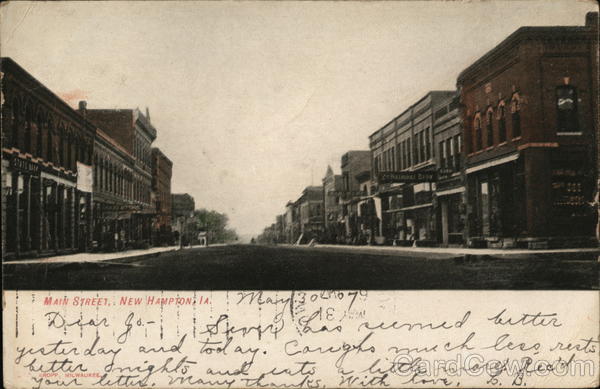 STATE BANK
MAIN STREET, NEW HAMPTON, IA.
May 30
Dear Jo- Sever has seemed better
yesterday and today. Coughs much less, rests
better nights and eats a little more. Recd
your letter. Many thanks. With love
KROPP, MILWAUKEE
CardCow.com